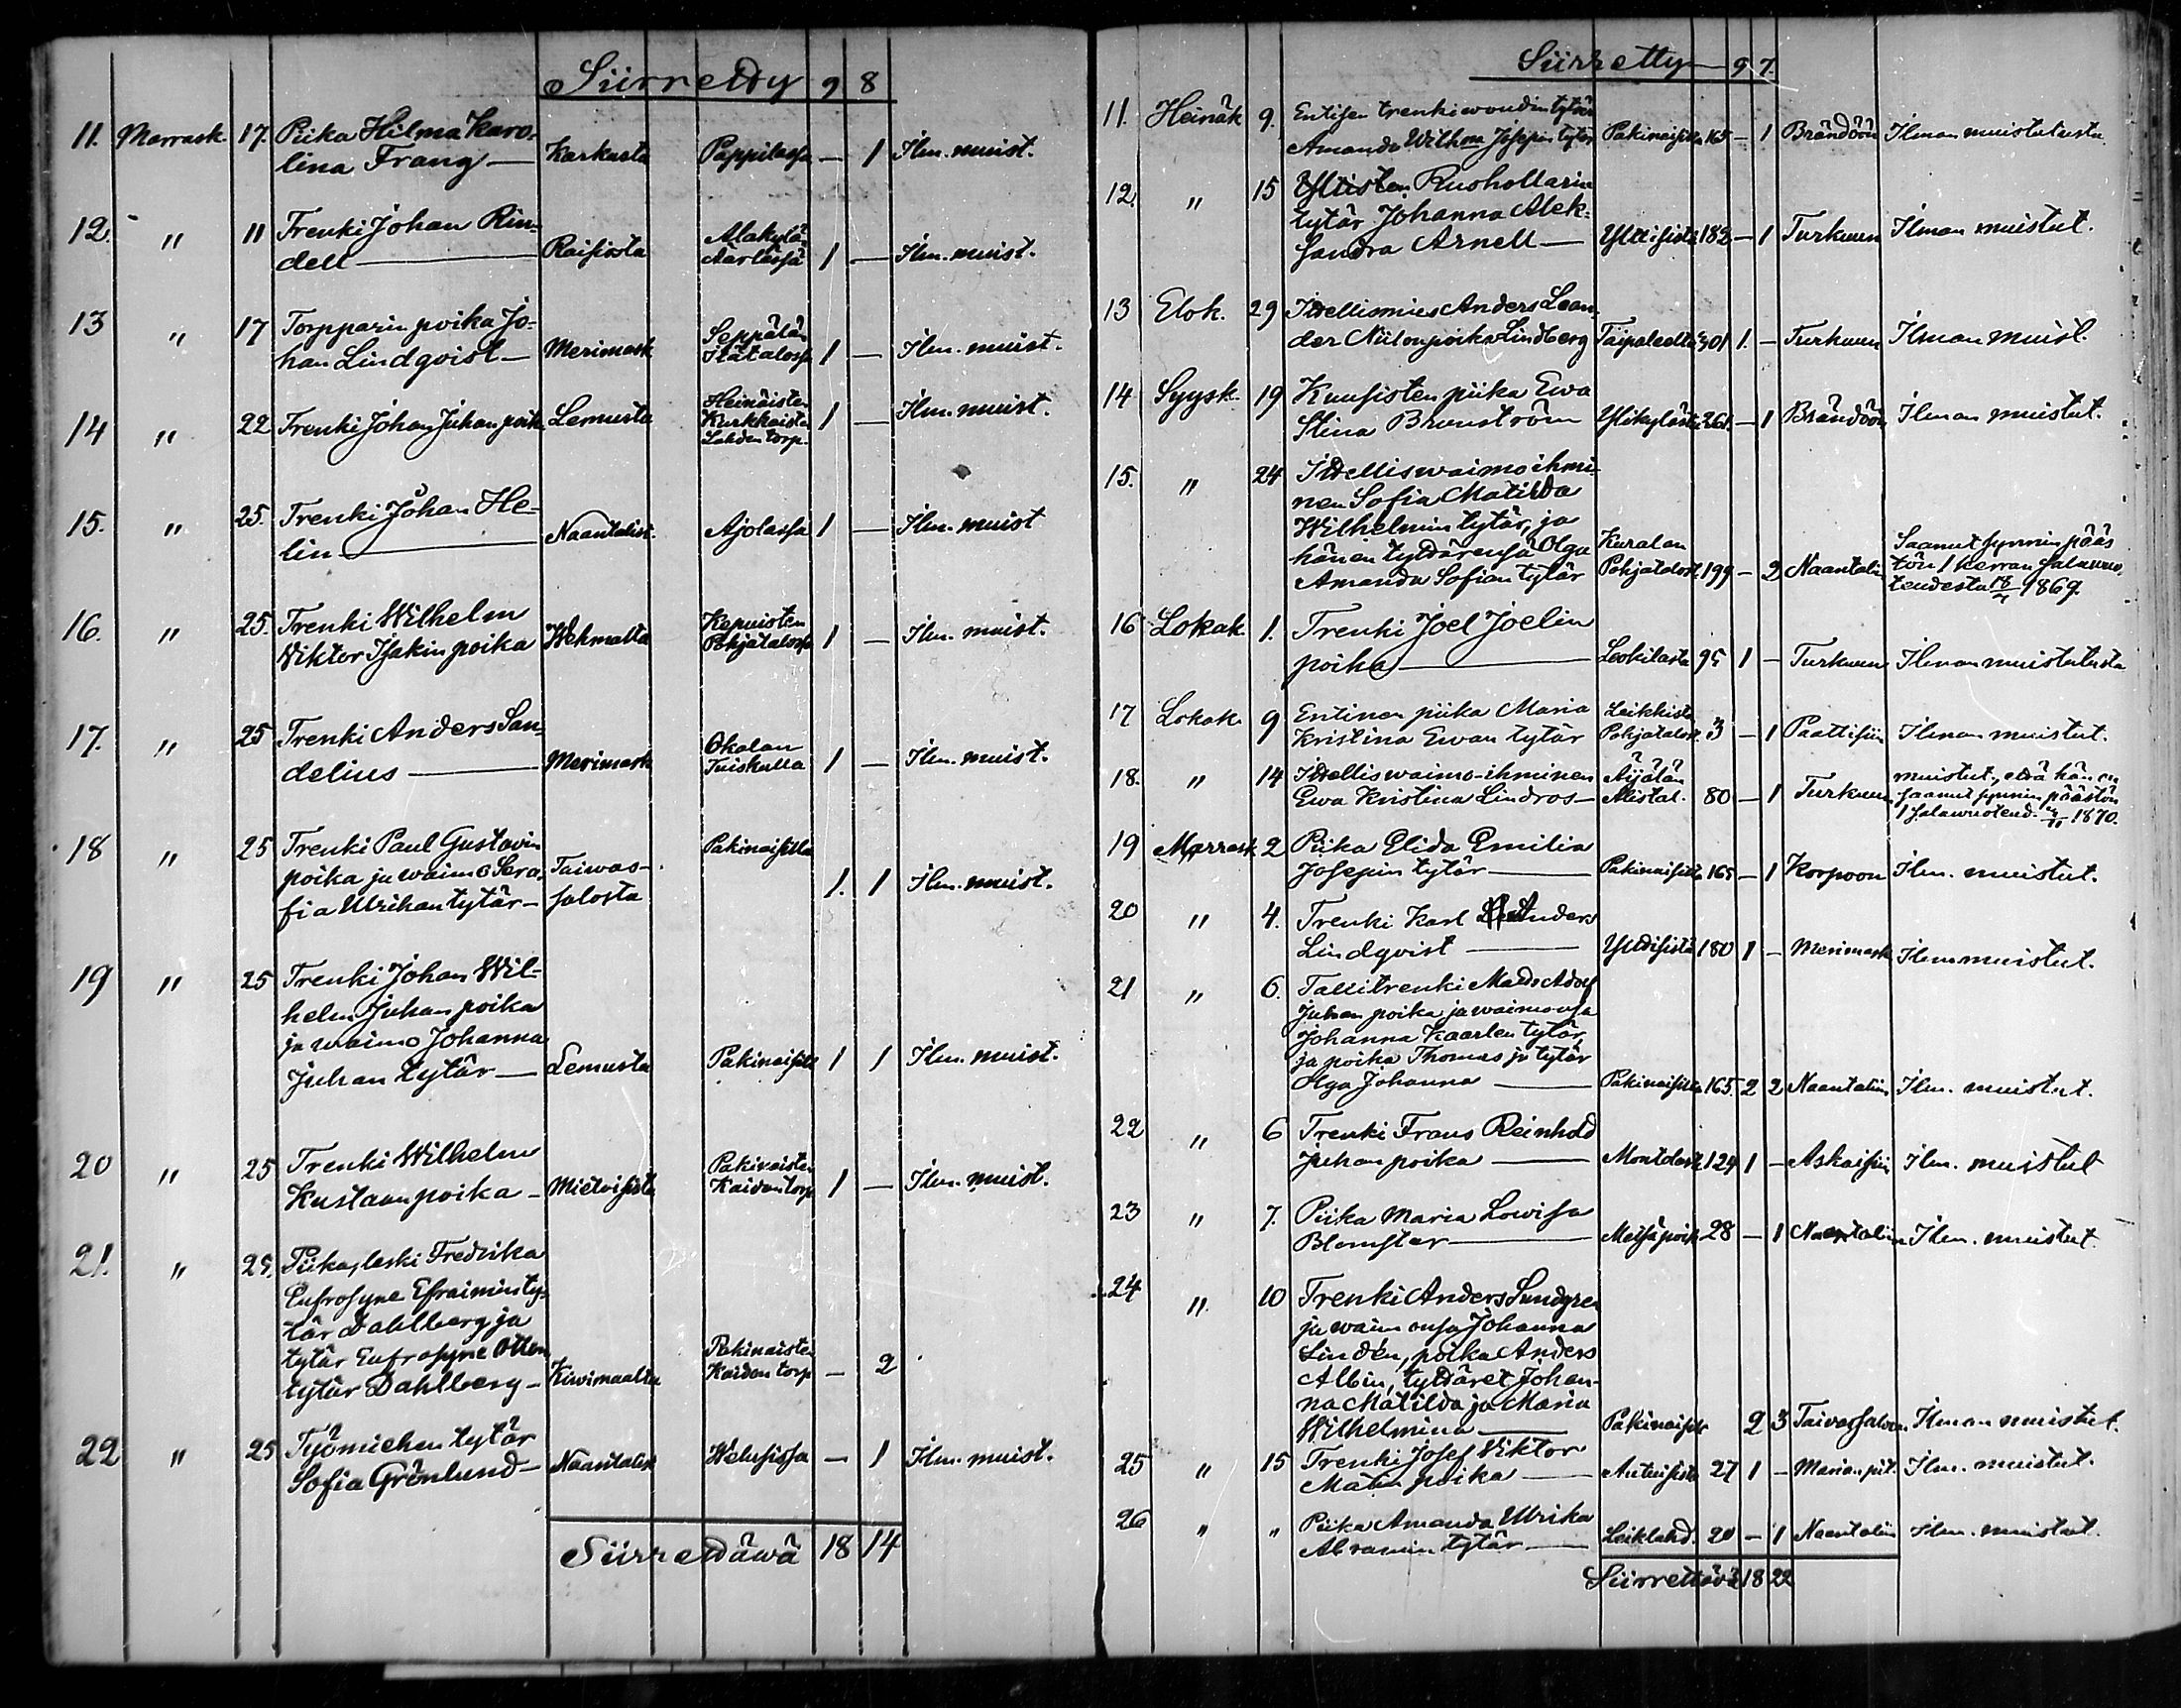 Siirretty 9 8
11. Marrask. 17. Piika Hilma Karo-
lina Frang — Karkusta Pappilassa — 1 Ilm. muist.
12. " 11 Trenki Johan Rin-
dell — Raisiosta Alakylä Äärlässä 1 — Ilm. muist.
13 " 17 Torpparin poika Jo-
han Lindqvist — Merimask Seppälän Itätalossa 1 — Ilm. muist.
14 " 22 Trenki Johan Juhan poik. Lemusta Heinäisten Kurkkaisten Lahden torp. 1 — Ilm. muist.
15. " 25. Trenki Johan He-
lin — Naantalist. Ajolassa 1 — Ilm. muist
16. " 25. Trenki Wilhelm
Viktor Isakin poika Wehmalta Pohjatalossa 1 — Ilm. muist.
17. " 25 Trenki Anders San-
delius — Merimask Okalan Tuiskulla 1 — Ilm. muist.
18 " 25 Trenki Paul Gustavin Pakinaisilla
poika ja waimo Sera- Taiwas-
fia Ulrikan tytär — salosta 1. 1 Ilm. muist.
19 " 25 Trenki Johan Wil-
helm Juhan poika
ja waimo Johanna
Juhan tytär — Lemusta Pakinaisilla 1 1 Ilm. muist.
20 " 25 Trenki Wilhelm
Kustaan poika — Mietoisista Pakinaisten Kaidan torp 1 — Ilm. muist.
21. " 25. Piika, leski Fredrika
Eufrosyne Efraimin ty-
tär Dahlberg ja
tytär Eufrosyne Otton
tytär Dahlberg — Kiwimaalta Pakinaisten Kaidan torp — 2
22 " 25 Työmiehen tytär
Sofia Grönlund — Naantalist Welusissa — 1 Ilm. muist.
Siirrettäwä 18 14
Siirretty 9 7.
11. Heinäk 9. Entisen trenkiwoudin tytär
Amanda Wilhma Josepin tytär Pakinaisilta 165 — 1 Brändöön Ilman muistutusta
12. " 15 Yltisten Rusthollarin
tytär Johanna Alek-
sandra Arnell — Yltisistä 182 — 1 Turkuun Ilman muistut.
13 Elok. 29 Itellismies Anders Lean-
der Niilon poika Lindberg Taipaleelta 301 1. — Turkuun Ilman muist.
14 Syysk. 19 Kuusisten piika Ewa
Stina Brunström Ylikylästä 261. — 1 Brändöön Ilman muistut.
15. " 24 Itelliswaimoihmi-
nen Sofia Matilda
Wilhelmin tytär, ja
hänen tyttärensä Olga Kuralan
Amanda Sofian tytär Pohjatalost. 199 — 2 Naantalin Saanut synnin pääs
tön 1 kerran salawuo-
teudesta 18/7 1869.
16 Lokak. 1. Trenki Joel Joelin
poika — Leokilasta 95 1 — Turkuun Ilman muistutusta
17 Lokak. 9 Entinen piika Maria Leikkistä
Kristina Ewan tytär Pohjatalost. 3 — 1 Paattisiin Ilman muistut.
18. " 14 Itelliswaimo-ihminen Äijälän
Ewa Kristina Lindros — Alistal. 80 — 1 Turkuun muistut., että hän on
saanut synnin päästön
1 salawuoteud. 1870.
19 Marrask. 2 Piika Elida Emilia
Josepin tytär — Pakinaisilta 165 — 1 Korpoon Ilm. muistut.
20 " 4. Trenki Karl Anders
Lindqvist — Yltisistä 180 1 — Merimask Ilm. muistut.
21 " 6. Tallitrenki Matts Adolf
Juhan poika ja waimonsa
Johanna Kaarlen tytär,
ja poika Thomas ja tytär
Olga Johanna — Pakinaisilta 165. 2 2 Naantaliin Ilm. muistut.
22 " 6 Trenki Frans Reinhold
Juhan poika — Montolast. 124 1 — Askaisiin Ilm. muistut
23 " 7. Piika Maria Lowisa
Blomster — Metsäpoik. 28 — 1 Naantaliin Ilm. muistut.
24 " 10 Trenki Anders Sundgren
ja waimonsa Johanna
Lindén, poika Anders
Albin, tyttäret Johan-
na Matilda ja Maria
Wilhelmina — Pakinaisilt 2 3 Taivassaloon Ilman muistut.
25 " 15 Trenki Josef Viktor
Matin poika — Antuisista 27 1 — Marian pit. Ilm. muistut.
26 " " Piika Amanda Ulrika
Abramin tytär — Leiklahd. 20 — 1 Naantaliin Ilm. muistut.
Siirrettävä 18 22